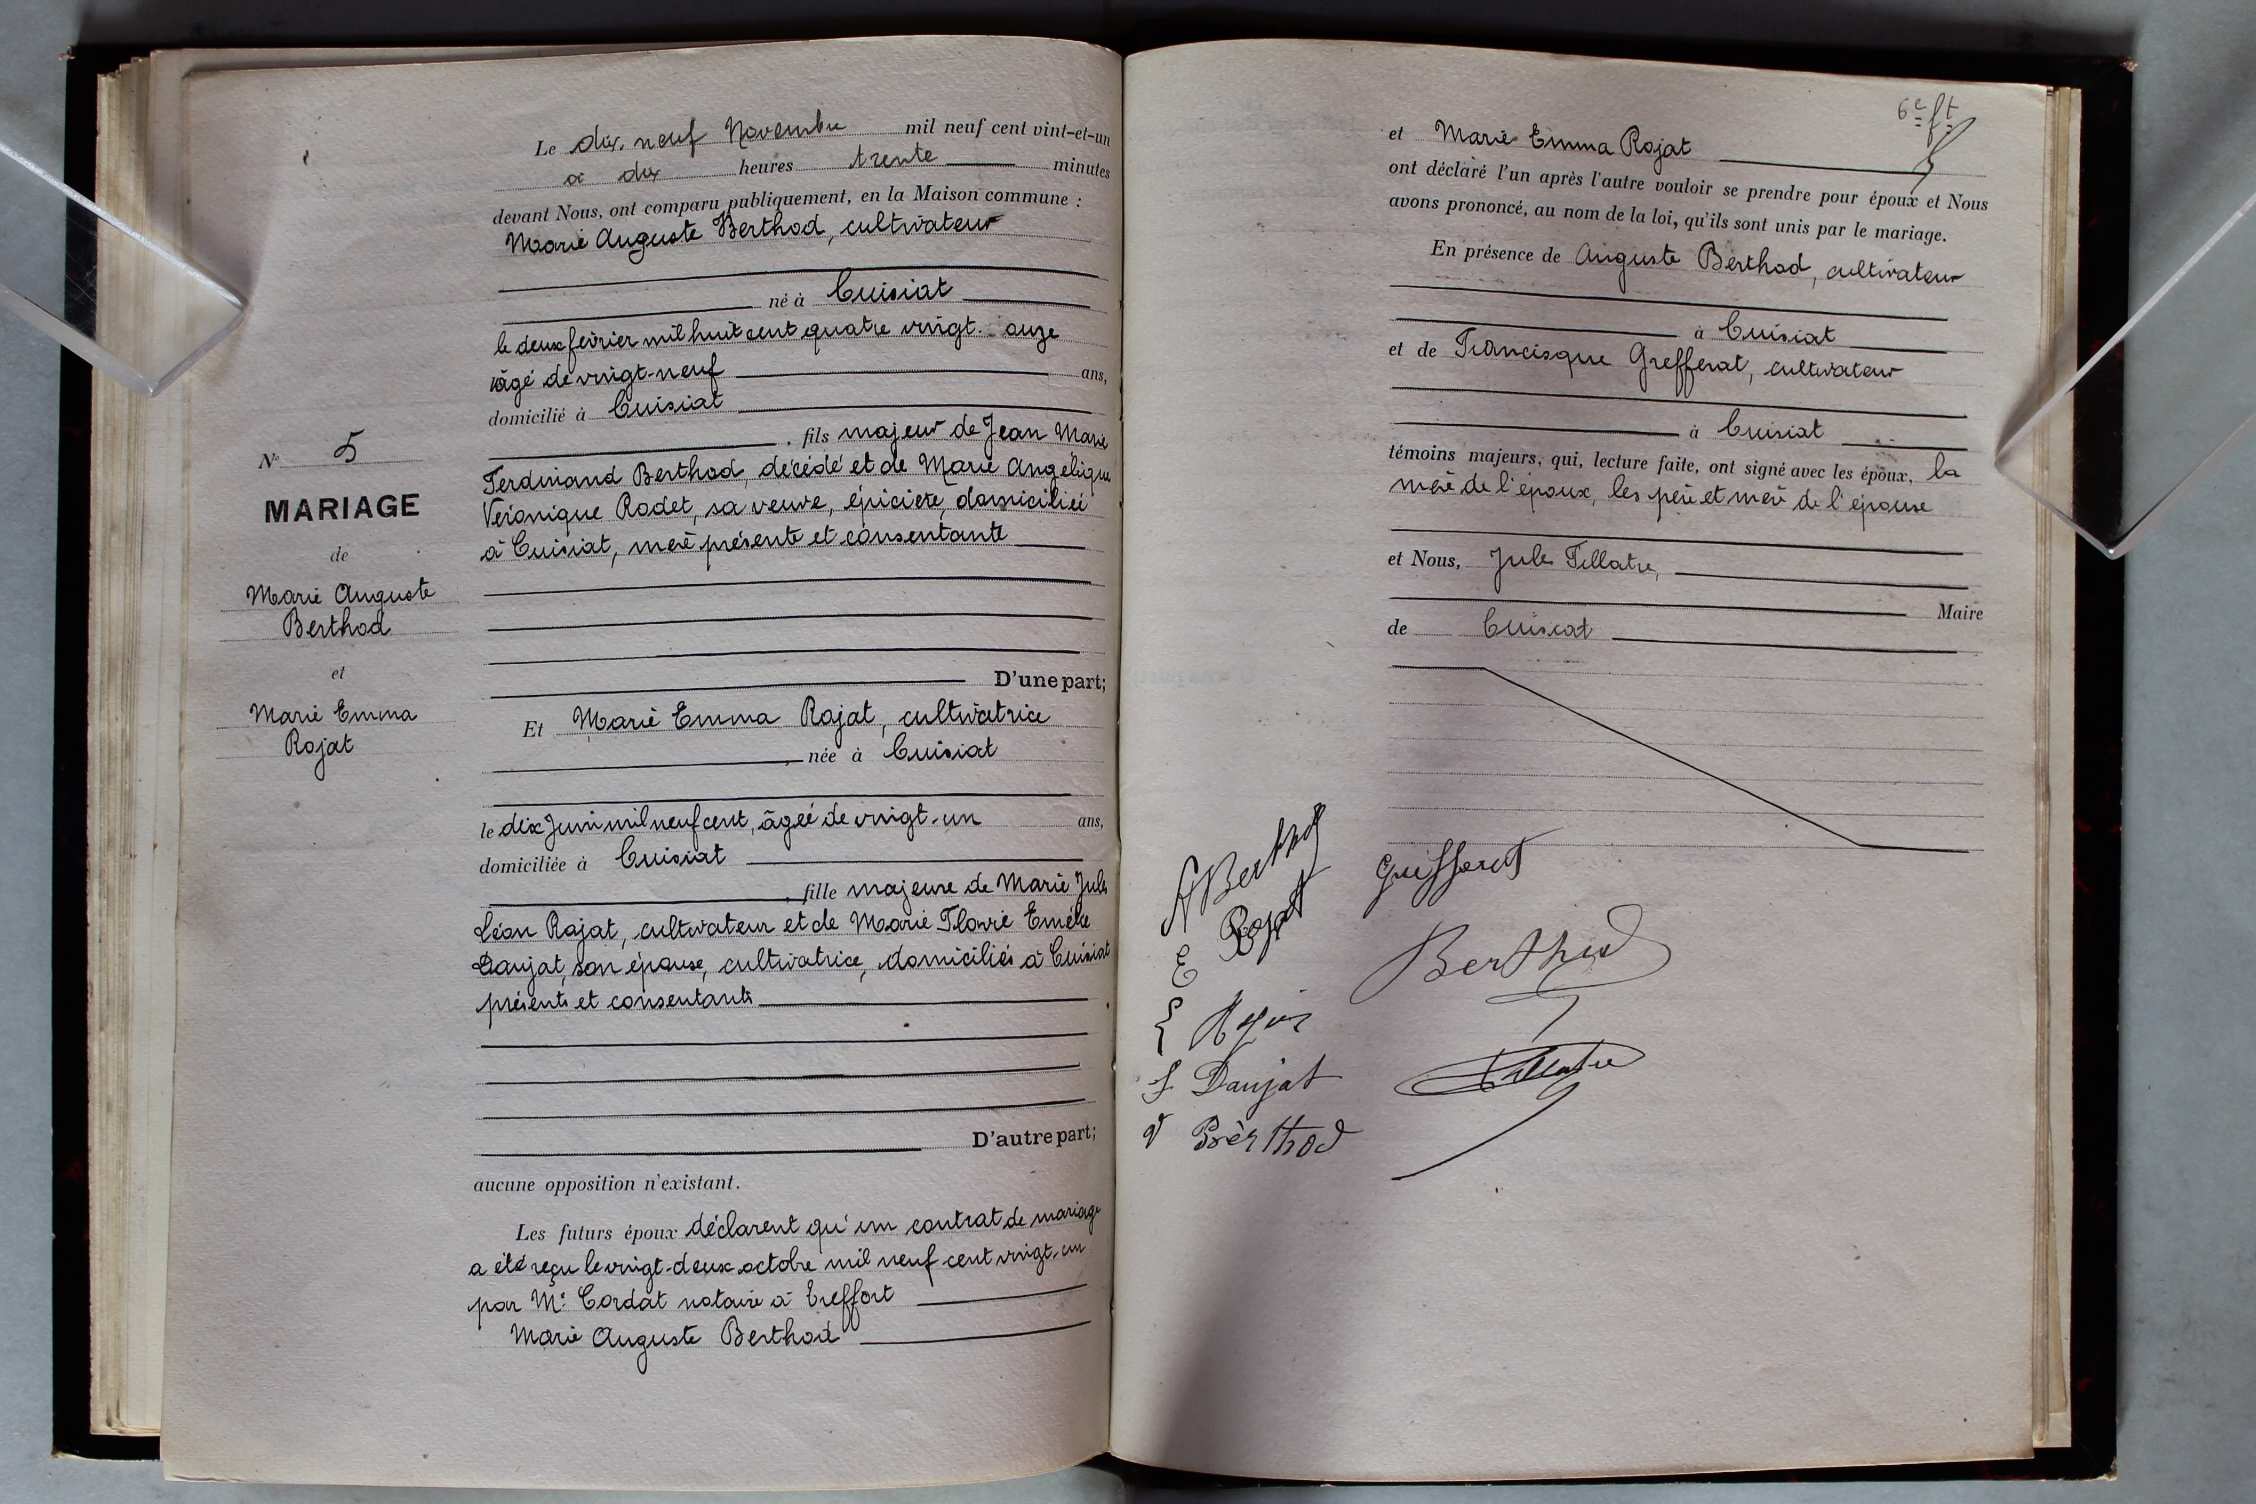 Le dix-neuf Novembre mil neuf cent vint-et-un
à dix heures trente minutes
devant Nous, ont comparu publiquement, en la Maison commune :
Marie Auguste Berthod, cultivateur
né à Cuisiat
le deux février mil huit cent quatre vingt-onze
âgé de vingt-neuf ans,
domicilié à Cuisiat
fils majeur de Jean Marie
Ferdinand Berthod, décédé et de Marie Angélique
Véronique Rodet, sa veuve, épicière, domiciliée
à Cuisiat, mère présente et consentante
D'une part;
Et Marie Emma Rojat, cultivatrice
née à Cuisiat
le dix Juin mil neuf cent, âgée de vingt-un ans,
domiciliée à Cuisiat
fille majeure de Marie Jules
Léon Rojat, cultivateur et de Marie Flavie
Daujat, son épouse, cultivatrice, domiciliés à Cuisiat
présents et consentants
D'autre part;
aucune opposition n'existant.
Les futurs époux déclarent qu'un contrat de mariage
a été reçu le vingt-deux octobre mil neuf cent vingt-un
par Me Cordat notaire à Treffort
Marie Auguste Berthod
No 5
MARIAGE
de
Marie Auguste
Berthod
et
Marie Emma
Rojat
6e ft
et Marie Emma Rojat
ont déclaré l'un après l'autre vouloir se prendre pour époux et Nous
avons prononcé, au nom de la loi, qu'ils sont unis par le mariage.
En présence de Auguste Berthod, cultivateur
à Cuisiat
et de Francisque Grefferat, cultivateur
à Cuisiat
témoins majeurs, qui, lecture faite, ont signé avec les époux, la
mère de l'époux, les père et mère de l'épouse
et Nous, Jules Tillatre,
Maire
de Cuisiat
A Berthod
E Rojat
L
F Daujat
V Bèrthod
Berthod
Tillatre